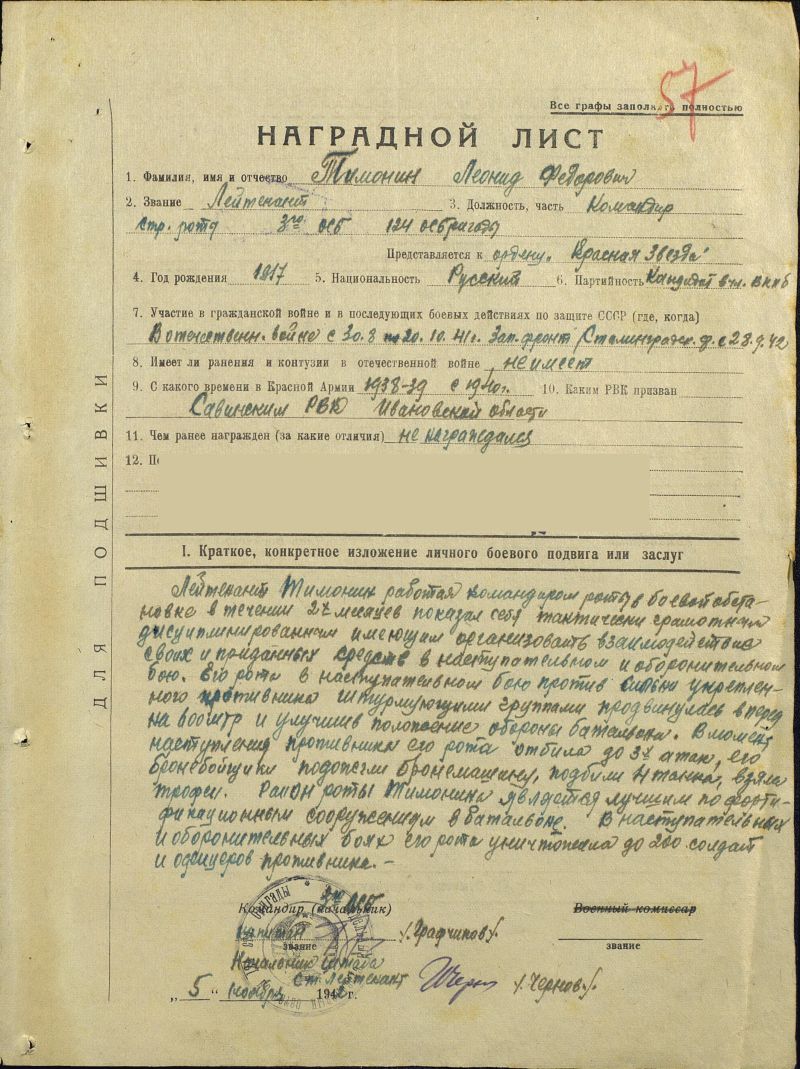 57
Все графы заполнять полностью
НАГРАДНОЙ ЛИСТ
1. Фамилия, имя и отчество Тимонин Леонид Федорович
2. Звание Лейтенант 3. Должность, часть Командир
стр. роты 3го ОСБ 124 осбригады
Представляется к ордену „Красная Звезда"
4. Год рождения 1917 5. Национальность Русский 6. Партийность Кандидат в чл. ВКПб
7. Участие в гражданской войне и в последующих боевых действиях по защите СССР (где, когда)
В отечественн. войне с 30.8 по 20.10.41г. Зап. фронт, Сталинградск. ф. с 28.9.42
8. Имеет ли ранения и контузии в отечественной войне не имеет
9. С какого времени в Красной Армии 1938-39 с 1940г. 10. Каким РВК призван
Савинским РВК Ивановской области
11. Чем ранее награжден (за какие отличия) не награждался
12.
I. Краткое, конкретное изложение личного боевого подвига или заслуг
Лейтенант Тимонин работая командиром роты в боевой обста-
новке в течении 2х месяцев показал себя тактически грамотным
дисциплинированным имеющим организовать взаимодействие
своих и приданных средств в наступательном и оборонительном
бою. Его рота в наступательном бою против сильно укреплен-
ного противника штурмующими группами продвинулась вперед
на 800 мтр и улучшив положение обороны батальона. В момент
наступления противника его рота отбила до 3х атак, его
бронебойщики подожгли бронемашину, подбили 4 танка, взяла
трофеи. Район роты Тимонина является лучшим по форти-
фикационным сооружениям в батальоне. В наступательных
и оборонительных боях его рота уничтожила до 200 солдат
и офицеров противника. –
3го ОСБ
Командир (начальник) Военный комиссар
капитан /Графчиков/
звание звание
Начальник штаба
Ст. Лейтенант /Чернов/.
„5" ноября 1942 г.
ДЛЯ ПОДШИВКИ